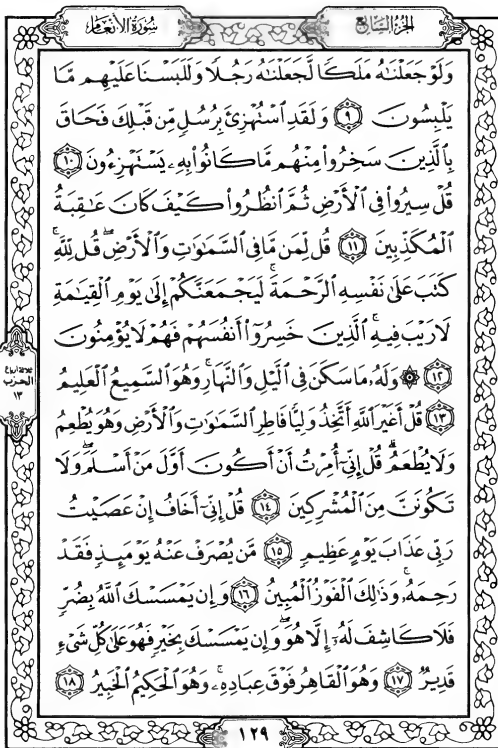 سُورَةُ الأَنْعَام الجُزْءُ السَّابِع
وَلَوْ جَعَلْنَٰهُ مَلَكًا لَّجَعَلْنَٰهُ رَجُلًا وَلَلَبَسْنَا عَلَيْهِم مَّا
يَلْبِسُونَ ٩ وَلَقَدِ ٱسْتُهْزِئَ بِرُسُلٍ مِّن قَبْلِكَ فَحَاقَ
بِٱلَّذِينَ سَخِرُوا۟ مِنْهُم مَّا كَانُوا۟ بِهِۦ يَسْتَهْزِءُونَ ١٠
قُلْ سِيرُوا۟ فِى ٱلْأَرْضِ ثُمَّ ٱنظُرُوا۟ كَيْفَ كَانَ عَٰقِبَةُ
ٱلْمُكَذِّبِينَ ١١ قُل لِّمَن مَّا فِى ٱلسَّمَٰوَٰتِ وَٱلْأَرْضِ ۖ قُل لِّلَّهِ ۚ
كَتَبَ عَلَىٰ نَفْسِهِ ٱلرَّحْمَةَ ۚ لَيَجْمَعَنَّكُمْ إِلَىٰ يَوْمِ ٱلْقِيَٰمَةِ
لَا رَيْبَ فِيهِ ۚ ٱلَّذِينَ خَسِرُوٓا۟ أَنفُسَهُمْ فَهُمْ لَا يُؤْمِنُونَ
١٢ ۞ وَلَهُۥ مَا سَكَنَ فِى ٱلَّيْلِ وَٱلنَّهَارِ ۚ وَهُوَ ٱلسَّمِيعُ ٱلْعَلِيمُ
١٣ قُلْ أَغَيْرَ ٱللَّهِ أَتَّخِذُ وَلِيًّا فَاطِرِ ٱلسَّمَٰوَٰتِ وَٱلْأَرْضِ وَهُوَ يُطْعِمُ
وَلَا يُطْعَمُ ۗ قُلْ إِنِّىٓ أُمِرْتُ أَنْ أَكُونَ أَوَّلَ مَنْ أَسْلَمَ ۖ وَلَا
تَكُونَنَّ مِنَ ٱلْمُشْرِكِينَ ١٤ قُلْ إِنِّىٓ أَخَافُ إِنْ عَصَيْتُ
رَبِّى عَذَابَ يَوْمٍ عَظِيمٍ ١٥ مَّن يُصْرَفْ عَنْهُ يَوْمَئِذٍ فَقَدْ
رَحِمَهُۥ ۚ وَذَٰلِكَ ٱلْفَوْزُ ٱلْمُبِينُ ١٦ وَإِن يَمْسَسْكَ ٱللَّهُ بِضُرٍّ
فَلَا كَاشِفَ لَهُۥٓ إِلَّا هُوَ ۖ وَإِن يَمْسَسْكَ بِخَيْرٍ فَهُوَ عَلَىٰ كُلِّ شَىْءٍ
قَدِيرٌ ١٧ وَهُوَ ٱلْقَاهِرُ فَوْقَ عِبَادِهِۦ ۚ وَهُوَ ٱلْحَكِيمُ ٱلْخَبِيرُ ١٨
ثلاثة أرباع
الحزب
١٣
١٢٩